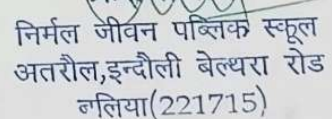 निर्मल जीवन पब्लिक स्कूल
अतरौल,इन्दौली बेल्थरा रोड
बलिया(221715)